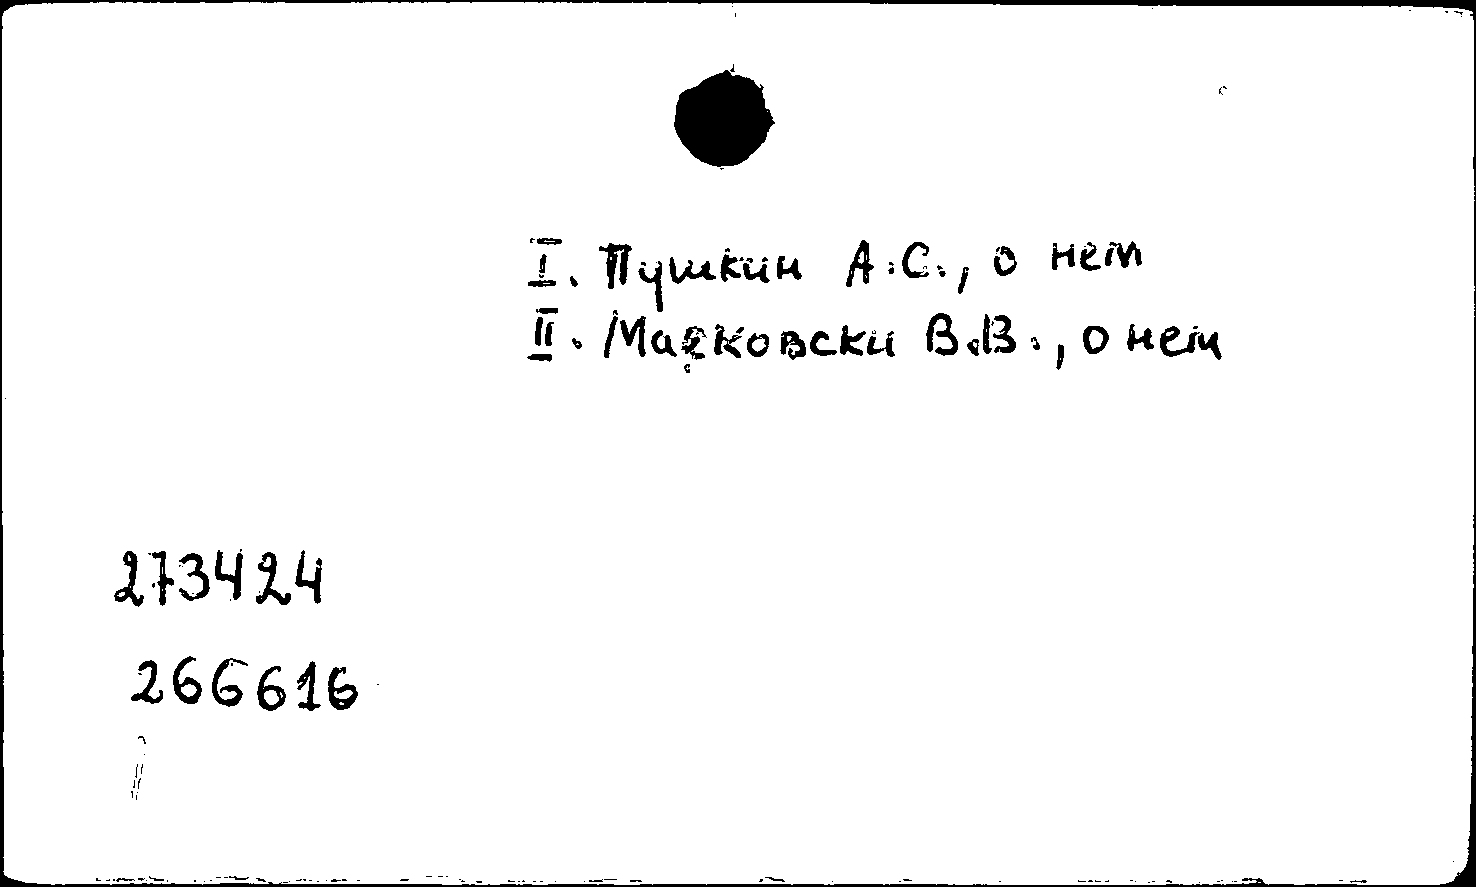 I. Пушкин А.С., о нем
II. Маяковски В.В., о нем
273424
266616